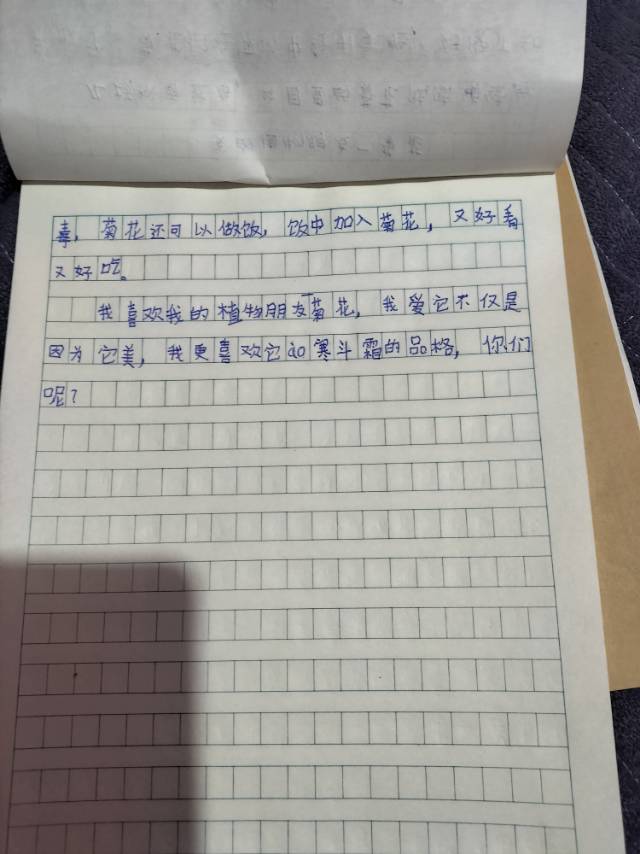 毒，菊花还可以做饭，饭中加入菊花，又好看
又好吃。
我喜欢我的植物朋友菊花，我爱它不仅是
因为它美，我更喜欢它ào寒斗霜的品格，你们
呢？